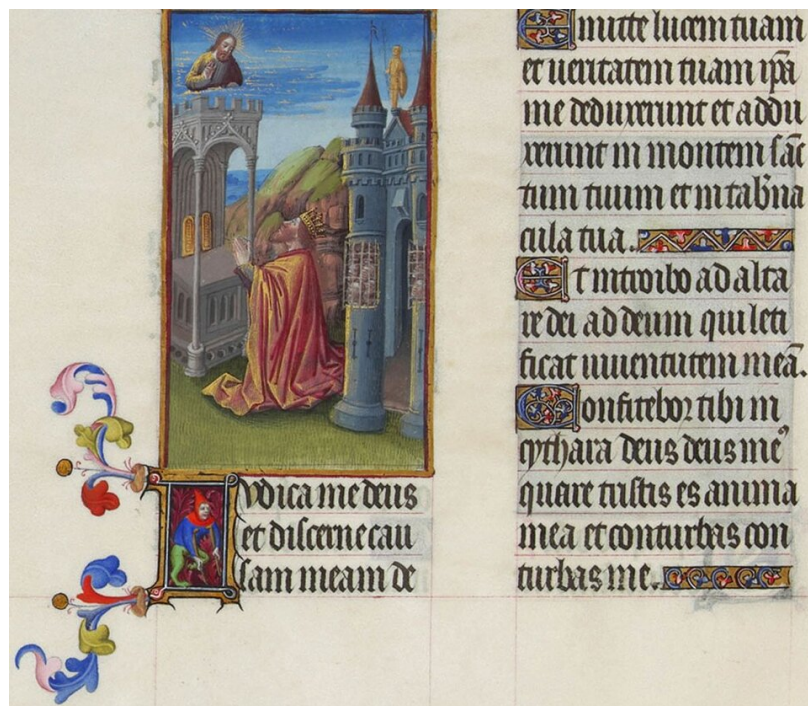 Iudica me deus
et discerne cau
sam meam de
Emitte lucem tuam
et ueritatem tuam ip̄a
me deduxerunt et addu
xerunt in montem sāc
tum tuum et in tab̄na
cula tua.
Et introibo ad alta
re dei ad deum qui leti
ficat iuuentutem meā.
Confitebor tibi in
cythara deus deus me᾿
quare tristis es anima
mea et conturbas con
turbas me.